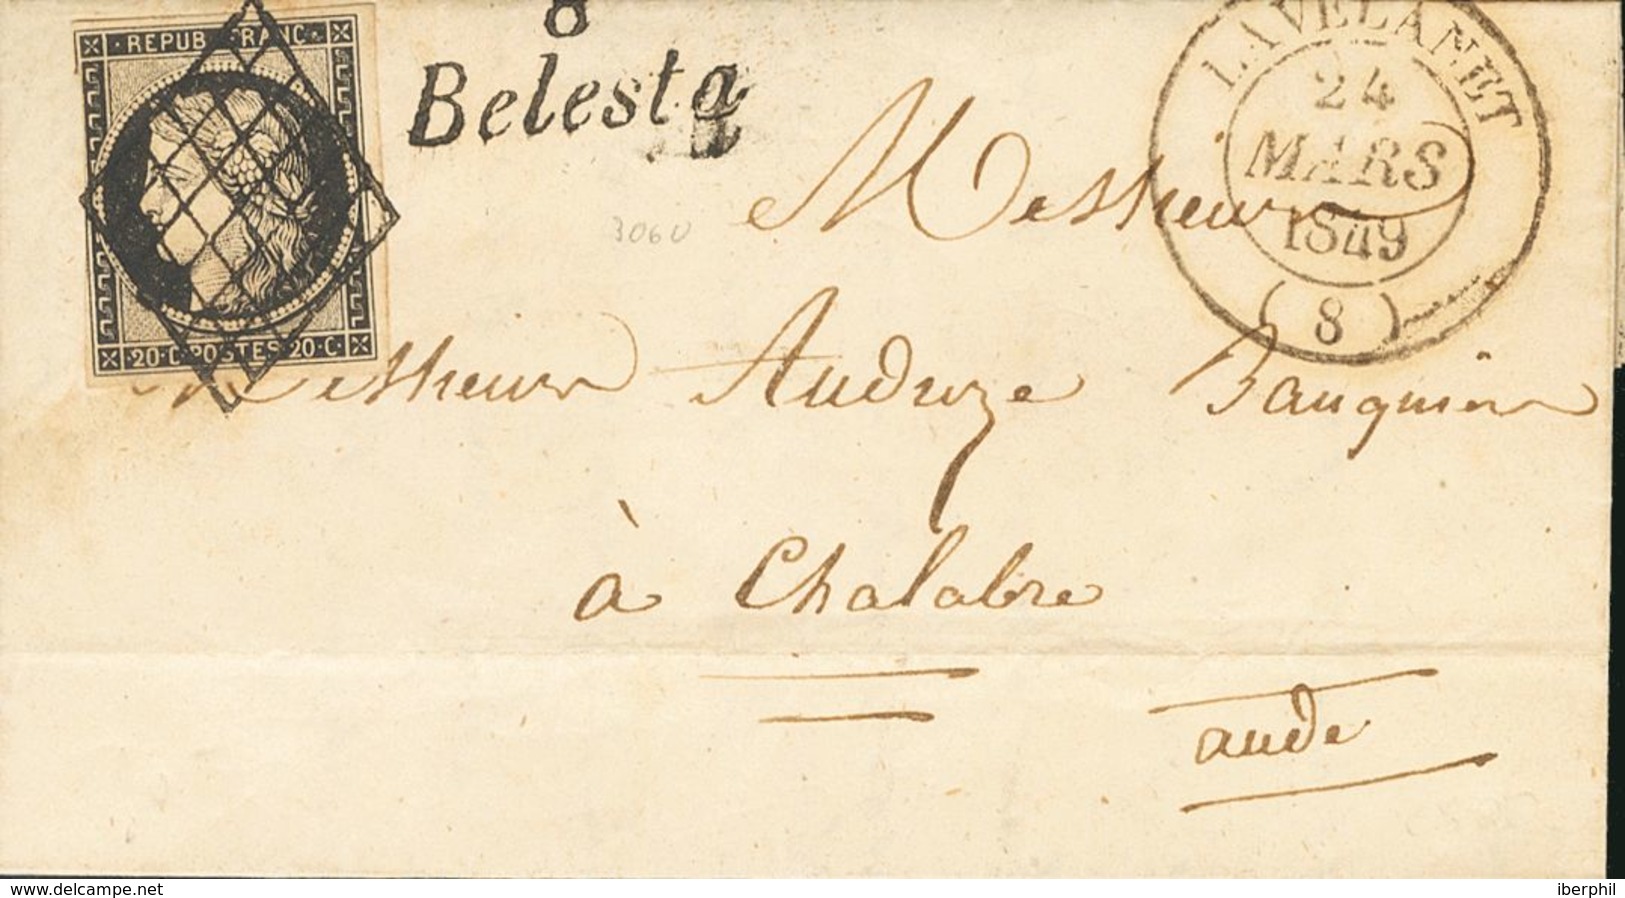 8
REPUB FRANC
Belesta
LAVELANET
24
MARS
1849
(8)
3060
Messieurs
20·C·POSTES·20·C·
Messieurs Auduze Banquier
à Chalabre
aude
www.delcampe.net
iberphil